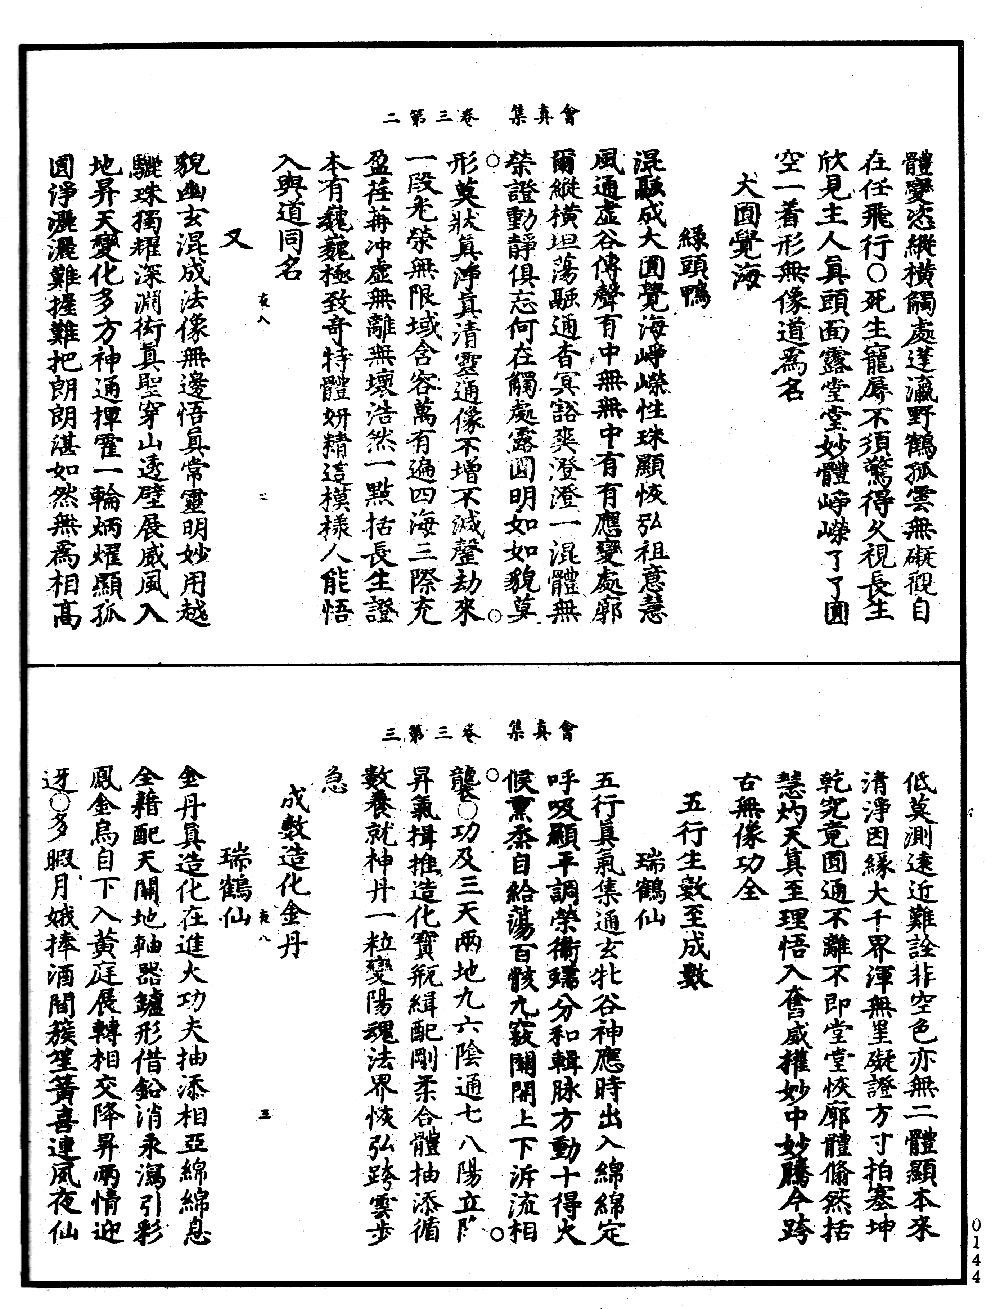 會真集　卷三第二
體變恣縱橫觸處蓬瀛野鶴孤雲無礙觀自
在任飛行○死生寵辱不須驚得久視長生
欣見主人真頭面露堂堂妙體崢嶸了了圓
空一着形無像道為名
大圓覺海
綠頭鴨
混融成大圓覺海崢嶸性珠顯恢弘祖意慧
風通虛谷傳聲有中無無中有有應變處廓
爾縱橫坦蕩融通杳冥谿奕澄澄一混體無
榮證動靜俱忘何在觸處露圓明如如貌莫
○
○
形莫狀真淨真清靈通像不增不減罄劫來
一段光榮無限域含容萬有遍四海三際充
盈荏苒冲虛無離無壞浩然一點括長生證
本有巍巍極致奇特體妍精這模樣人能悟
入與道同名
夜八
二
又
貌幽玄混成法像無邊悟真常靈明妙用越
驪珠獨耀深淵術真聖穿山透壁展威風入
地昇天變化多方神通揮霍一輪炳燿顯孤
圓淨灑灑難握難把朗朗湛如然無為相高
會真集　卷三第三
低莫測遠近難詮非空色亦無二體顯本來
清淨因緣大千界渾無罣礙證方寸拍塞坤
乾究竟圓通不離不即堂堂恢廓體翛然括
慧灼天真至理悟入奮威權妙中妙騰今跨
古無像功全
五行生數至成數
瑞鶴仙
五行真氣集通玄牝谷神應時出入綿綿定
呼吸顯平調榮衛蠕分和輯脉方動十得火
候熏烝自給蕩百骸九竅關開上下泝流相
○
○
襲○功及三天兩地九六陰通七八陽立
昇氣揖推造化寶瓶緝配剛柔合體抽添循
數養就神丹一粒變陽魂法界恢弘跨雲步
急
成數造化金丹
夜八
三
瑞鶴仙
金丹真造化在進火功夫抽添相亞綿綿息
全藉配天關地軸器鑪形借鉛消汞瀉引彩
鳳金烏自下入黃庭展轉相交降昇兩情迎
迓○多暇月娥捧酒間簇笙簧喜連風夜仙
0144